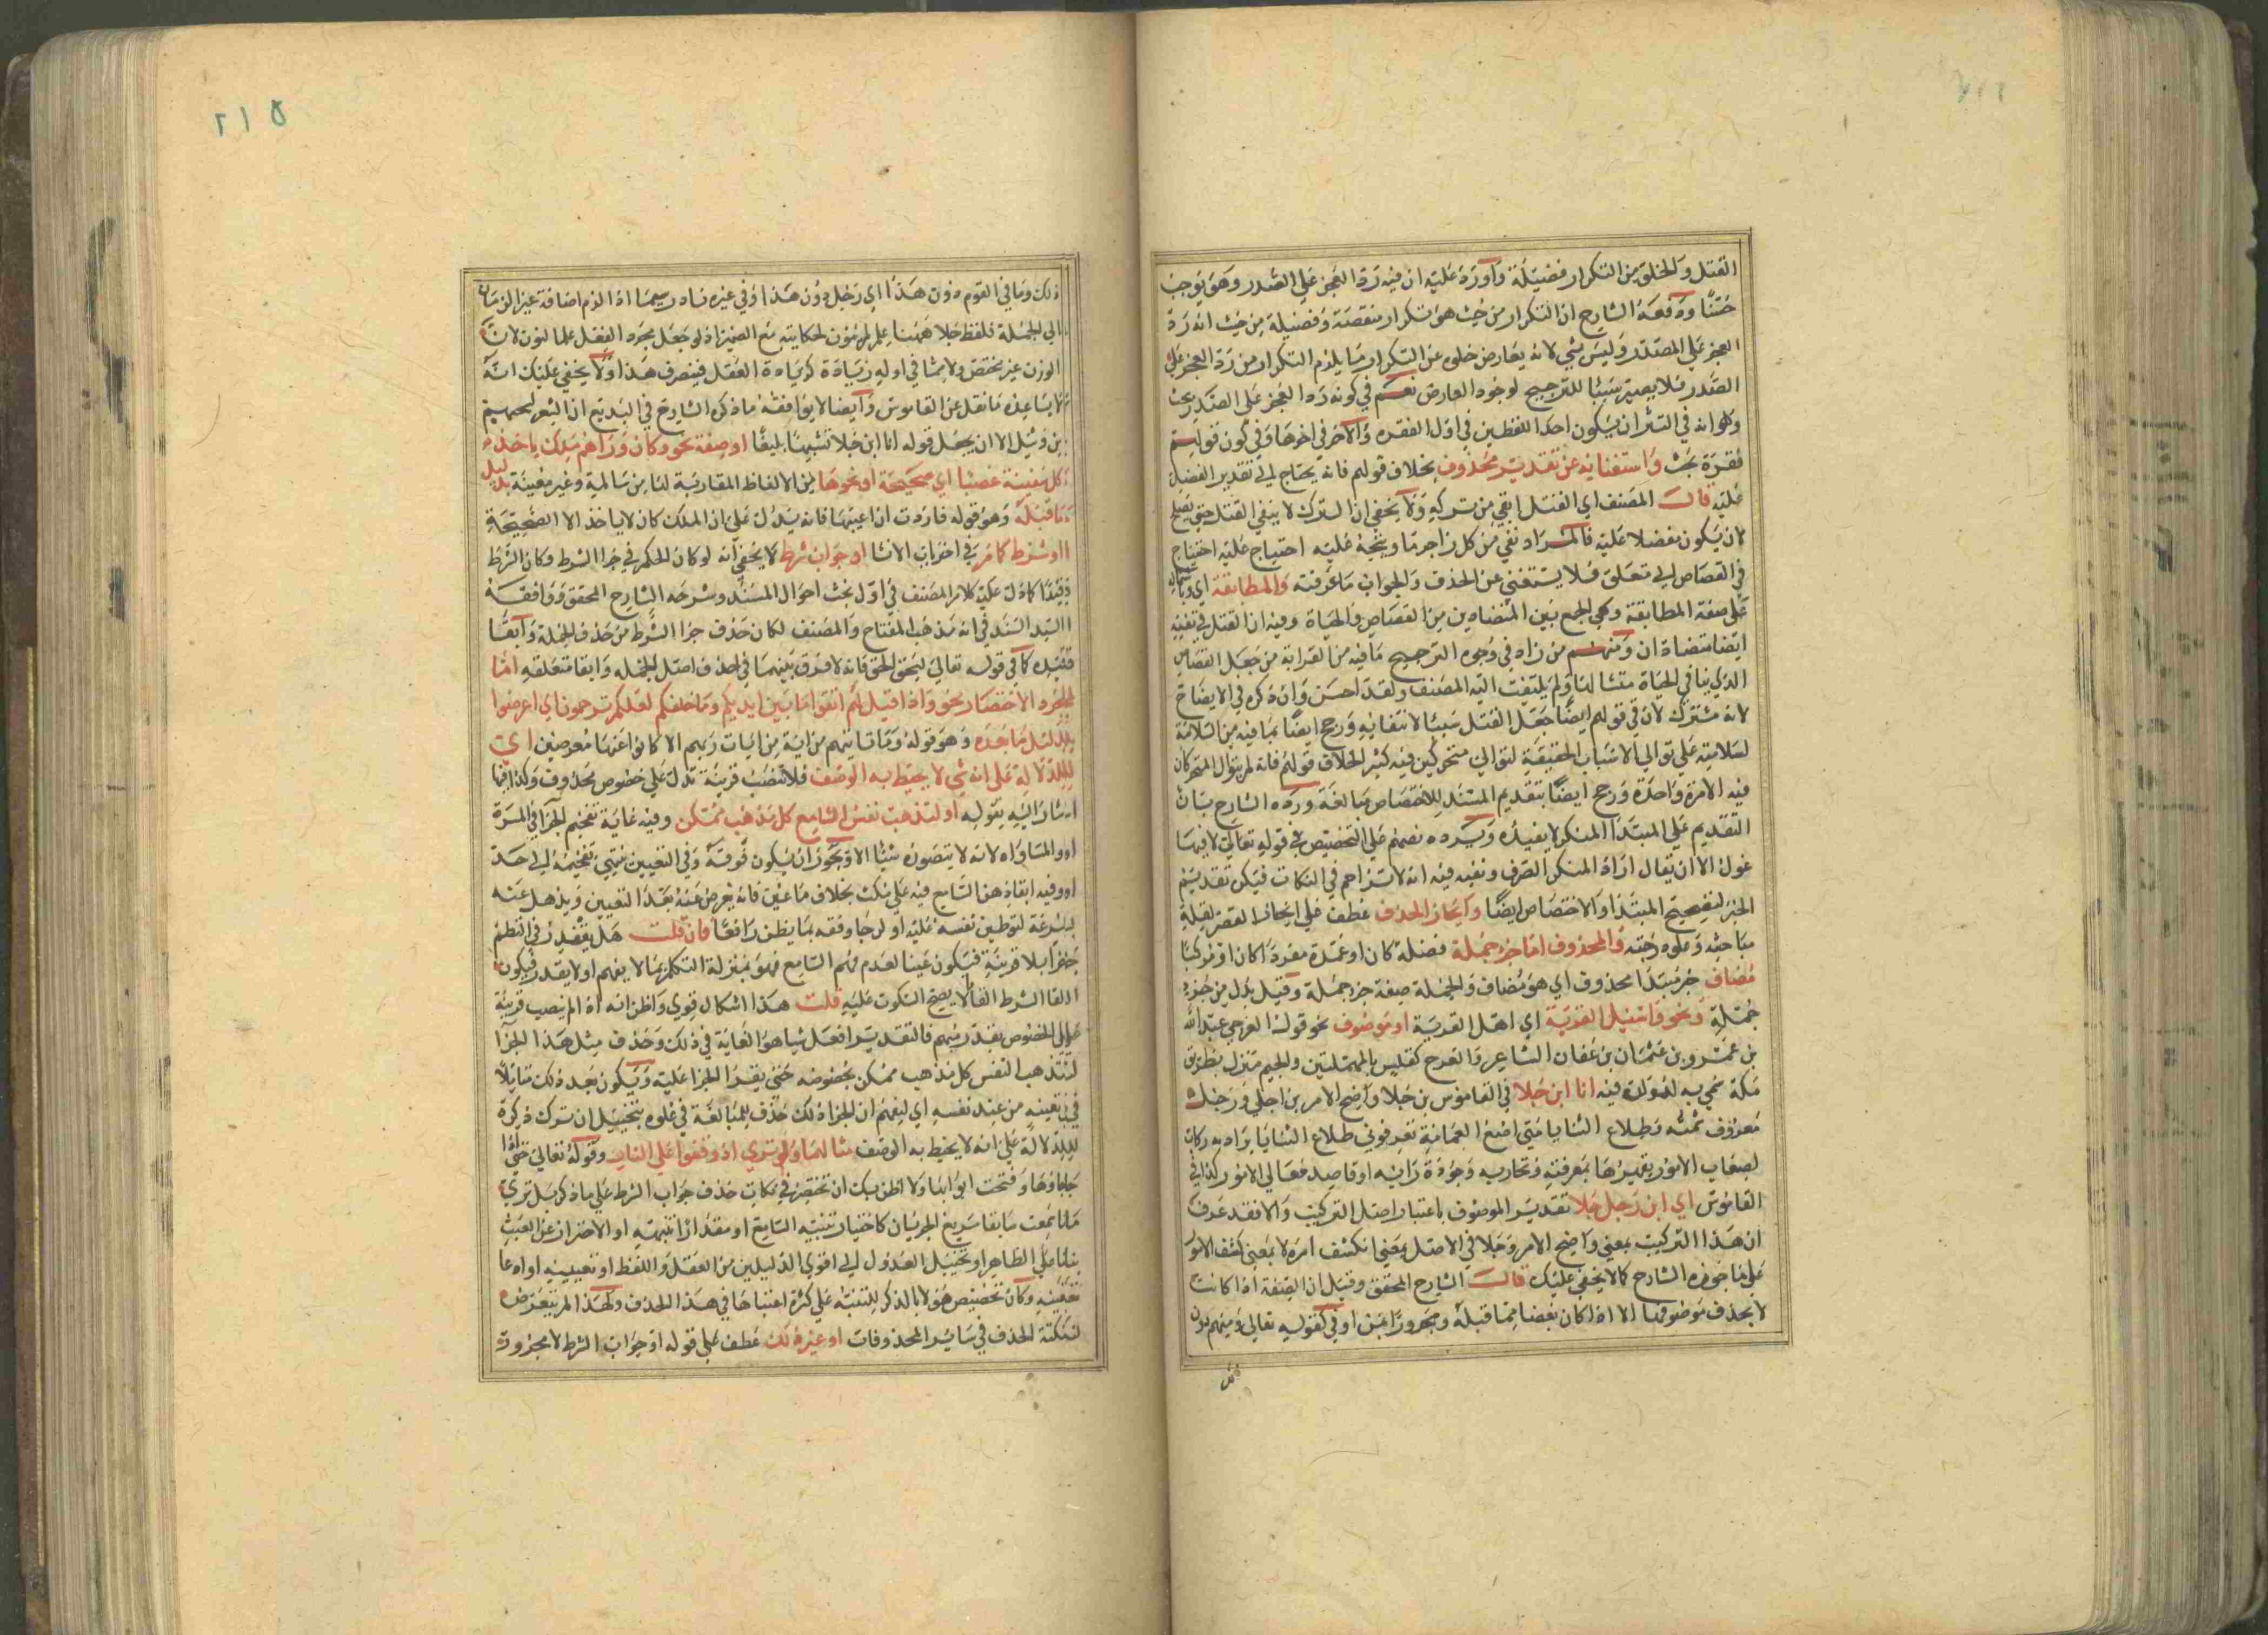 القتل والخلو من التكرار فضيلة وأورد عليه ان فيه رد العجز على الصدر وهو يوجب
حسنًا ودفعه الشارح ان التكرار من حيث هو تكرار منقصة وفضيلة من حيث انه رد
العجز على الصدر وليس بشي لانه يعارض خلوه عن التكرار ما يلزم التكرار من رد العجز على
الصدر فلا يصير سببا للترجيح لوجود العارض نعم في كونه رد العجز على الصدر بحث
وهو انه في النثر ان يكون احد اللفظين في اول الفقرة والآخر في اخرها وفي كون قولهم
فقرة بحث واستغنائه عن تقدير محذوف بخلاف قولهم فانه يحتاج الى تقدير المفضل
عليه قال المصنف اي القتل انفي من تركه ولا يخفى ان الترك لا ينفي القتل حتى يصلح
لان يكون مفضلا عليه فالمراد نفي من كل زاجر ما ويتجه عليه احتياج عليه احتياج
في القصاص الى متعلق فلا يستغني عن الحذف والجواب ما عرفته والمطابقة اي وباشتماله
على صفة المطابقة وهي الجمع بين المتضادين من القصاص والحياة وفيه ان القتل في نفيه
ايضا متضادان ومنهم من زاد في وجوه الترجيح ما فيه من الغرابة من جعل القصاص
الذي ينافي الحياة منشا لها ولم يلتفت اليه المصنف ولقد احسن وان ذكره في الايضاح
لانه مشترك لان في قولهم ايضًا جعل القتل سببا لانتفائه ورجح ايضًا بما فيه من السلامة
لسلامته على توالي الاسباب الخفيفة لتوالي متحركين فيه كثير الخلاف قولهم فانه لم يتوال المتحركان
فيه الامرة واحدة ورجح ايضًا بتقديم المسند للاختصاص مبالغة ورده الشارح بان
التقديم على المبتدا المنكر لا يفيده ويرده نصهم على التخصيص في قوله تعالى لا فيها
غول الا ان يقال اراد المنكر الصرف ونفيه فيه انه لا تزاحم في النكات فيكن تقديم
الخبر لتصحيح المبتدا والاختصاص ايضًا وايجاز الحذف عطف على ايجاز القصر لقيلة
مباحثه وعلوه رتبته والمحذوف اما جزء جملة فضلة كان او عمدة مفردا كان او مركبًا
مضاف خبر مبتدا محذوف اي هو مضاف والجملة صفة جزء جملة وقيل بدل من جزء
جملة نحو واسئل القرية اي اهل القرية او موصوف نحو قوله العرجي عبد الله
بن عمرو بن عثمان بن عفان الشاعر والعرج كفلس بالمهملتين والجيم منزل بطريق
مكة سمي به لتولده فيه انا ابن جلا في القاموس بن جلا واضح الامر بن اجلى ورجل
معروف ثمته وطلاع الثنايا متى اضع العمامة تعرفوني طلاع الثنايا يراد به ركاب
لصعاب الامور يقهرها بمعرفته وتجاربه وجودة رايه او قاصد معالي الامور كذا في
القاموس اي ابن رجل جلا تقدير الموصوف باعتبار اصل التركيب والا فقد عرف
ان هذا التركيب بمعنى واضح الامر وجلا في الاصل بمعنى انكشف امره لا بمعنى كشف الامور
على ما جوزه الشارح كما لا يخفى عليك قال الشارح المحقق وقيل ان الصفة اذا كانت
لا يحذف موصوفها الا اذا كان بعضا مما قبله ومجرورًا بمن او في كقوله تعالى ومنهم دون
ذلك وما في القوم دون هذا اي رجل دون هذا او في غيره نادر سيما اذا لزم اضافة غير الزمان
الى الجملة فلفظ جلا ههنا علم لم ينون لحكايته مع الضمير اذ لو جعل مجرد الفعل علما لنون لان
الوزن غير مختص ولا مما في اوله زيادة كزيادة الفعل فينصرف هذا ولا يخفى عليك انه
لا يساعده ما نقل عن القاموس وايضا لا يوافقه ما ذكره الشارح في البديع ان الشعر لسحيم
بن وثيل الا ان يجعل قوله انا ابن جلا تشبيها بليغًا او صفة نحو وكان وراءهم ملك ياخذ
كل سفينة غصبا اي صحيحة او نحوها من الالفاظ المقاربة لها من سالمة وغير معيبة بدليل
ما قبله وهو قوله فاردت ان اعيبها فانه يدل على ان الملك كان لا ياخذ الا الصحيحة
او شرط كما مر في اخر باب الانشا او جواب شرط لا يخفى انه لو كان الحكم في جزا الشرط وكان الشرط
قيدًا كما دل عليه كلام المصنف في اول بحث احوال المسند وشرحه الشارح المحقق ووافقه
السيد السند في انه مذهب المفتاح والمصنف لكان حذف جزا الشرط من حذف الجملة وابقا
قيده كما في قوله تعالى ليحق الحق فانه لا فرق بينهما في حذف اصل الجملة وابقا متعلقه اما
لمجرد الاختصار نحو واذا قيل لهم اتقوا ما بين ايديكم وما خلفكم لعلكم ترحمون اي اعرضوا
بدليل ما بعده وهو قوله وما تاتيهم من اية من ايات ربهم الا كانوا عنها معرضين او
للدلالة على انه شي لا يحيط به الوصف فلا تنصب قرينة تدل على خصوص محذوف وكذا فيما
اشار اليه بقوله او لتذهب نفس السامع كل مذهب ممكن وفيه غاية تفخيم الجزا في المسرة
او المساواه لانه لا يتصور شيئا الا ويجوز ان يكون فوقه وفي التعيين ينتهي تفخيمه الى حد
او وفيه ابقاء ذهن السامع فيه على مكث بخلاف ما عين فانه يعرض عنه بعد التعيين ويذهل عنه
بسرعة لتوطين نفسه عليه او لرجا وقعه بما يظن رافعًا فان قلت هل يقدر في النظم
جزءًا بلا قرينة فيكون عبثا لعدم فهم السامع فهو بمنزلة التكلم بما لا يفهم او لا يقدر فيكون
القا الشرط القا لا يصح السكوت عليه قلت هذا اشكال قوي واظن انه اذا لم ينصب قرينة
على الخصوص يقدر مبهم فالتقدير افعل شيا هو الغاية في ذلك وحذف مثل هذا الجزا
لتذهب النفس كل مذهب ممكن بخصوصه حتى يقدر الجزا عليه ويكون بعد ذلك متاملا
في تعيينه من عند نفسه اي ليفهم ان الجزا ذلك حذف للمبالغة في علوه بتخييل ان ترك ذكره
للدلالة على انه لا يحيط به الوصف مثالهما ولو ترى اذ وقفوا على النار وقوله تعالى حتى اذا
جاؤها وفتحت ابوابها ولا اظن بك ان تختصر في نكات حذف جواب الشرط على ما ذكر بل ترى
ما سمعت سابقا سريع الجريان كاختيار تنبه السامع او مقدار تنبهه او الاحتراز عن العبث
بنا على الظاهر او تخييل العدول الى اقوى الدليلين من العقل واللفظ او تعيينه او ادعا
تعينه وكان تخصيص هؤلا بالذكر للتنبيه على كثرة اعتبارها في هذا الحذف ولهذا لم يتعرض
لنكتة الحذف في سائر المحذوفات او غير ذلك عطف على قوله او جواب الشرط لا مجرور